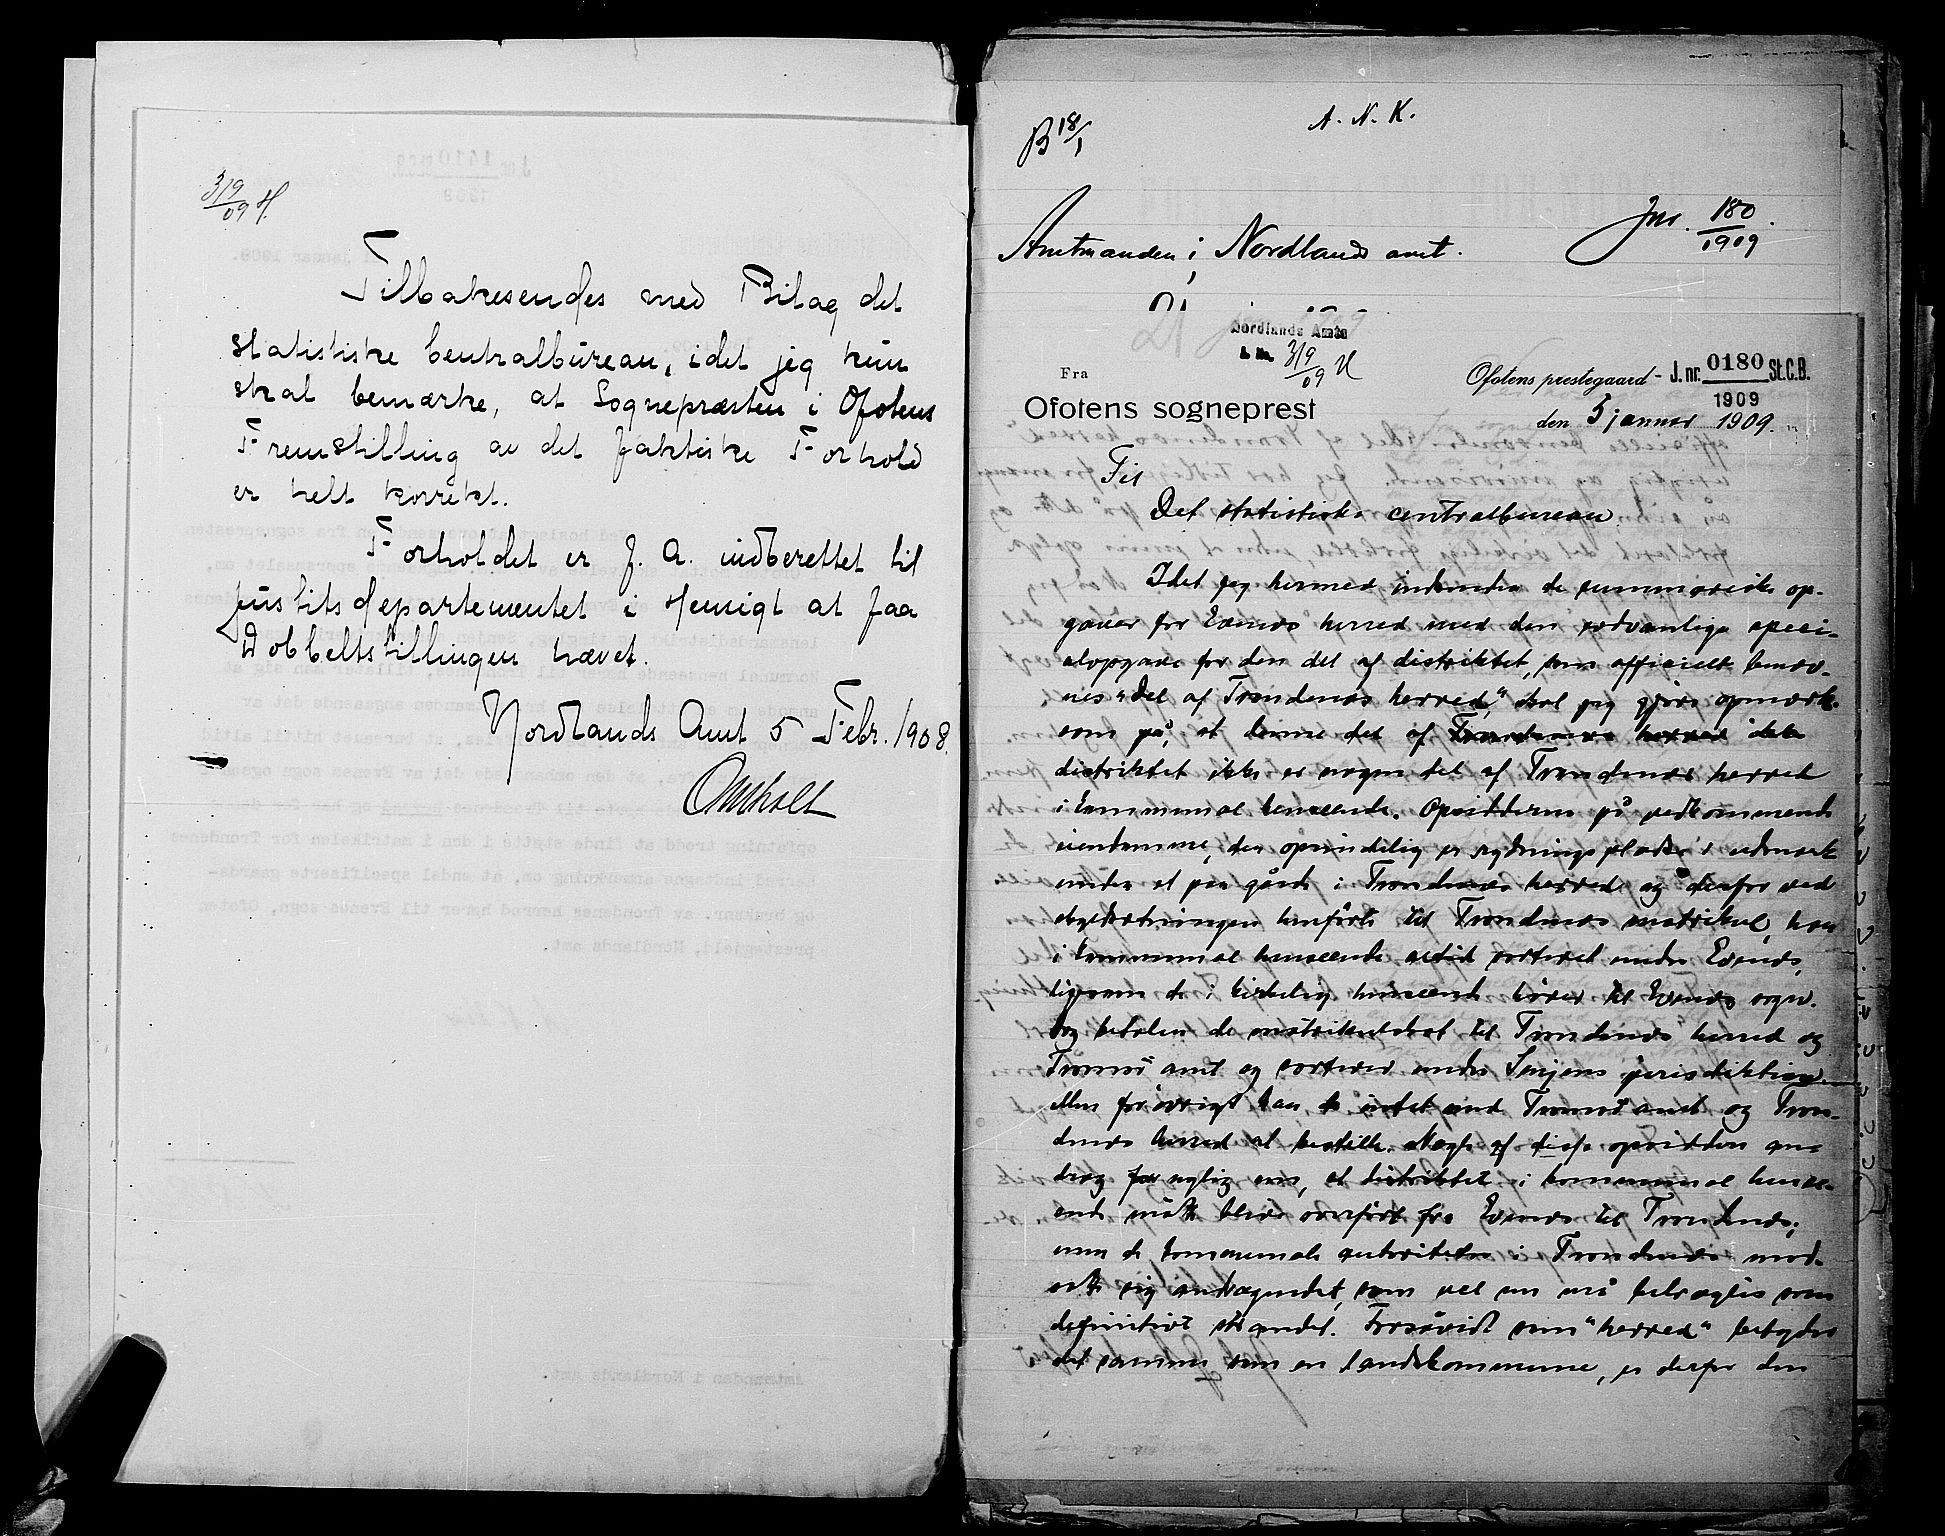 319
09 H.
Tilbakesendes med Bilag det
statistiske Centralbureau, idet jeg kun
skal bemærke, at Sognepræsten i Ofotens
Fremstilling av det faktiske Forhold
er helt korrekt.
Forholdet er f. A. indberettet til
Justitsdepartementet i Hensigt at faa
Dobbeltstillingen hævet.
Nordlands Amt 5 Febr. 1908.
A. N. K.
B 18/1
Jnr. 180
1909
Amtmanden i Nordlands amt.
21
Nordlands Amts
J. No. 319
09 H
Fra
Ofotens sogneprest
Ofotens prestegaard - J. nr. 0180 St.C.B.
1909
den 5 januar 1909.
Til
Det statistiske centralbureau
Idet jeg hermed indsender de summariske op-
gaver for Evenes herred med den sedvanlige speci-
alopgave for den del af distriktet, som officielt benæv-
nes "Del af Trondenes herred," skal jeg gjøre opmærk-
som på, at denne del af Trondenes herred dette
distriktet ikke er nogen del af Trondenes herred
i kommunal henseende. Opsidderne på vedkommende
eiendomme, der oprindelig er rydningspladse i udmark
under et par gårde i Trondenes herred og derfor ved
skyldsætningen henførte til Trondenes matrikul, har
i kommunal henseende altid sorteret under Evenes,
ligesom de i kirkelig henseende hører til Evenes sogn.
Og betaler de matrikulskat til Trondenes herred og
Tromsø amt og sorterer under Senjens jurisdiktion.
Men forøvrigt har de intet med Tromsø amt og Tron-
denes herred at bestille. Nogle af disse opsiddere an-
drog for nylig om, at distriktet i kommunal hense-
ende måtte blive overført fra Evenes til Trondenes;
men de kommunale autoriteter i Trondenes mod-
satte sig andragendet, som vel nu må betragtes som
definitivt strandet. Forsåvidt som "herred" betyder
det samme som en landskommune, er derfor den